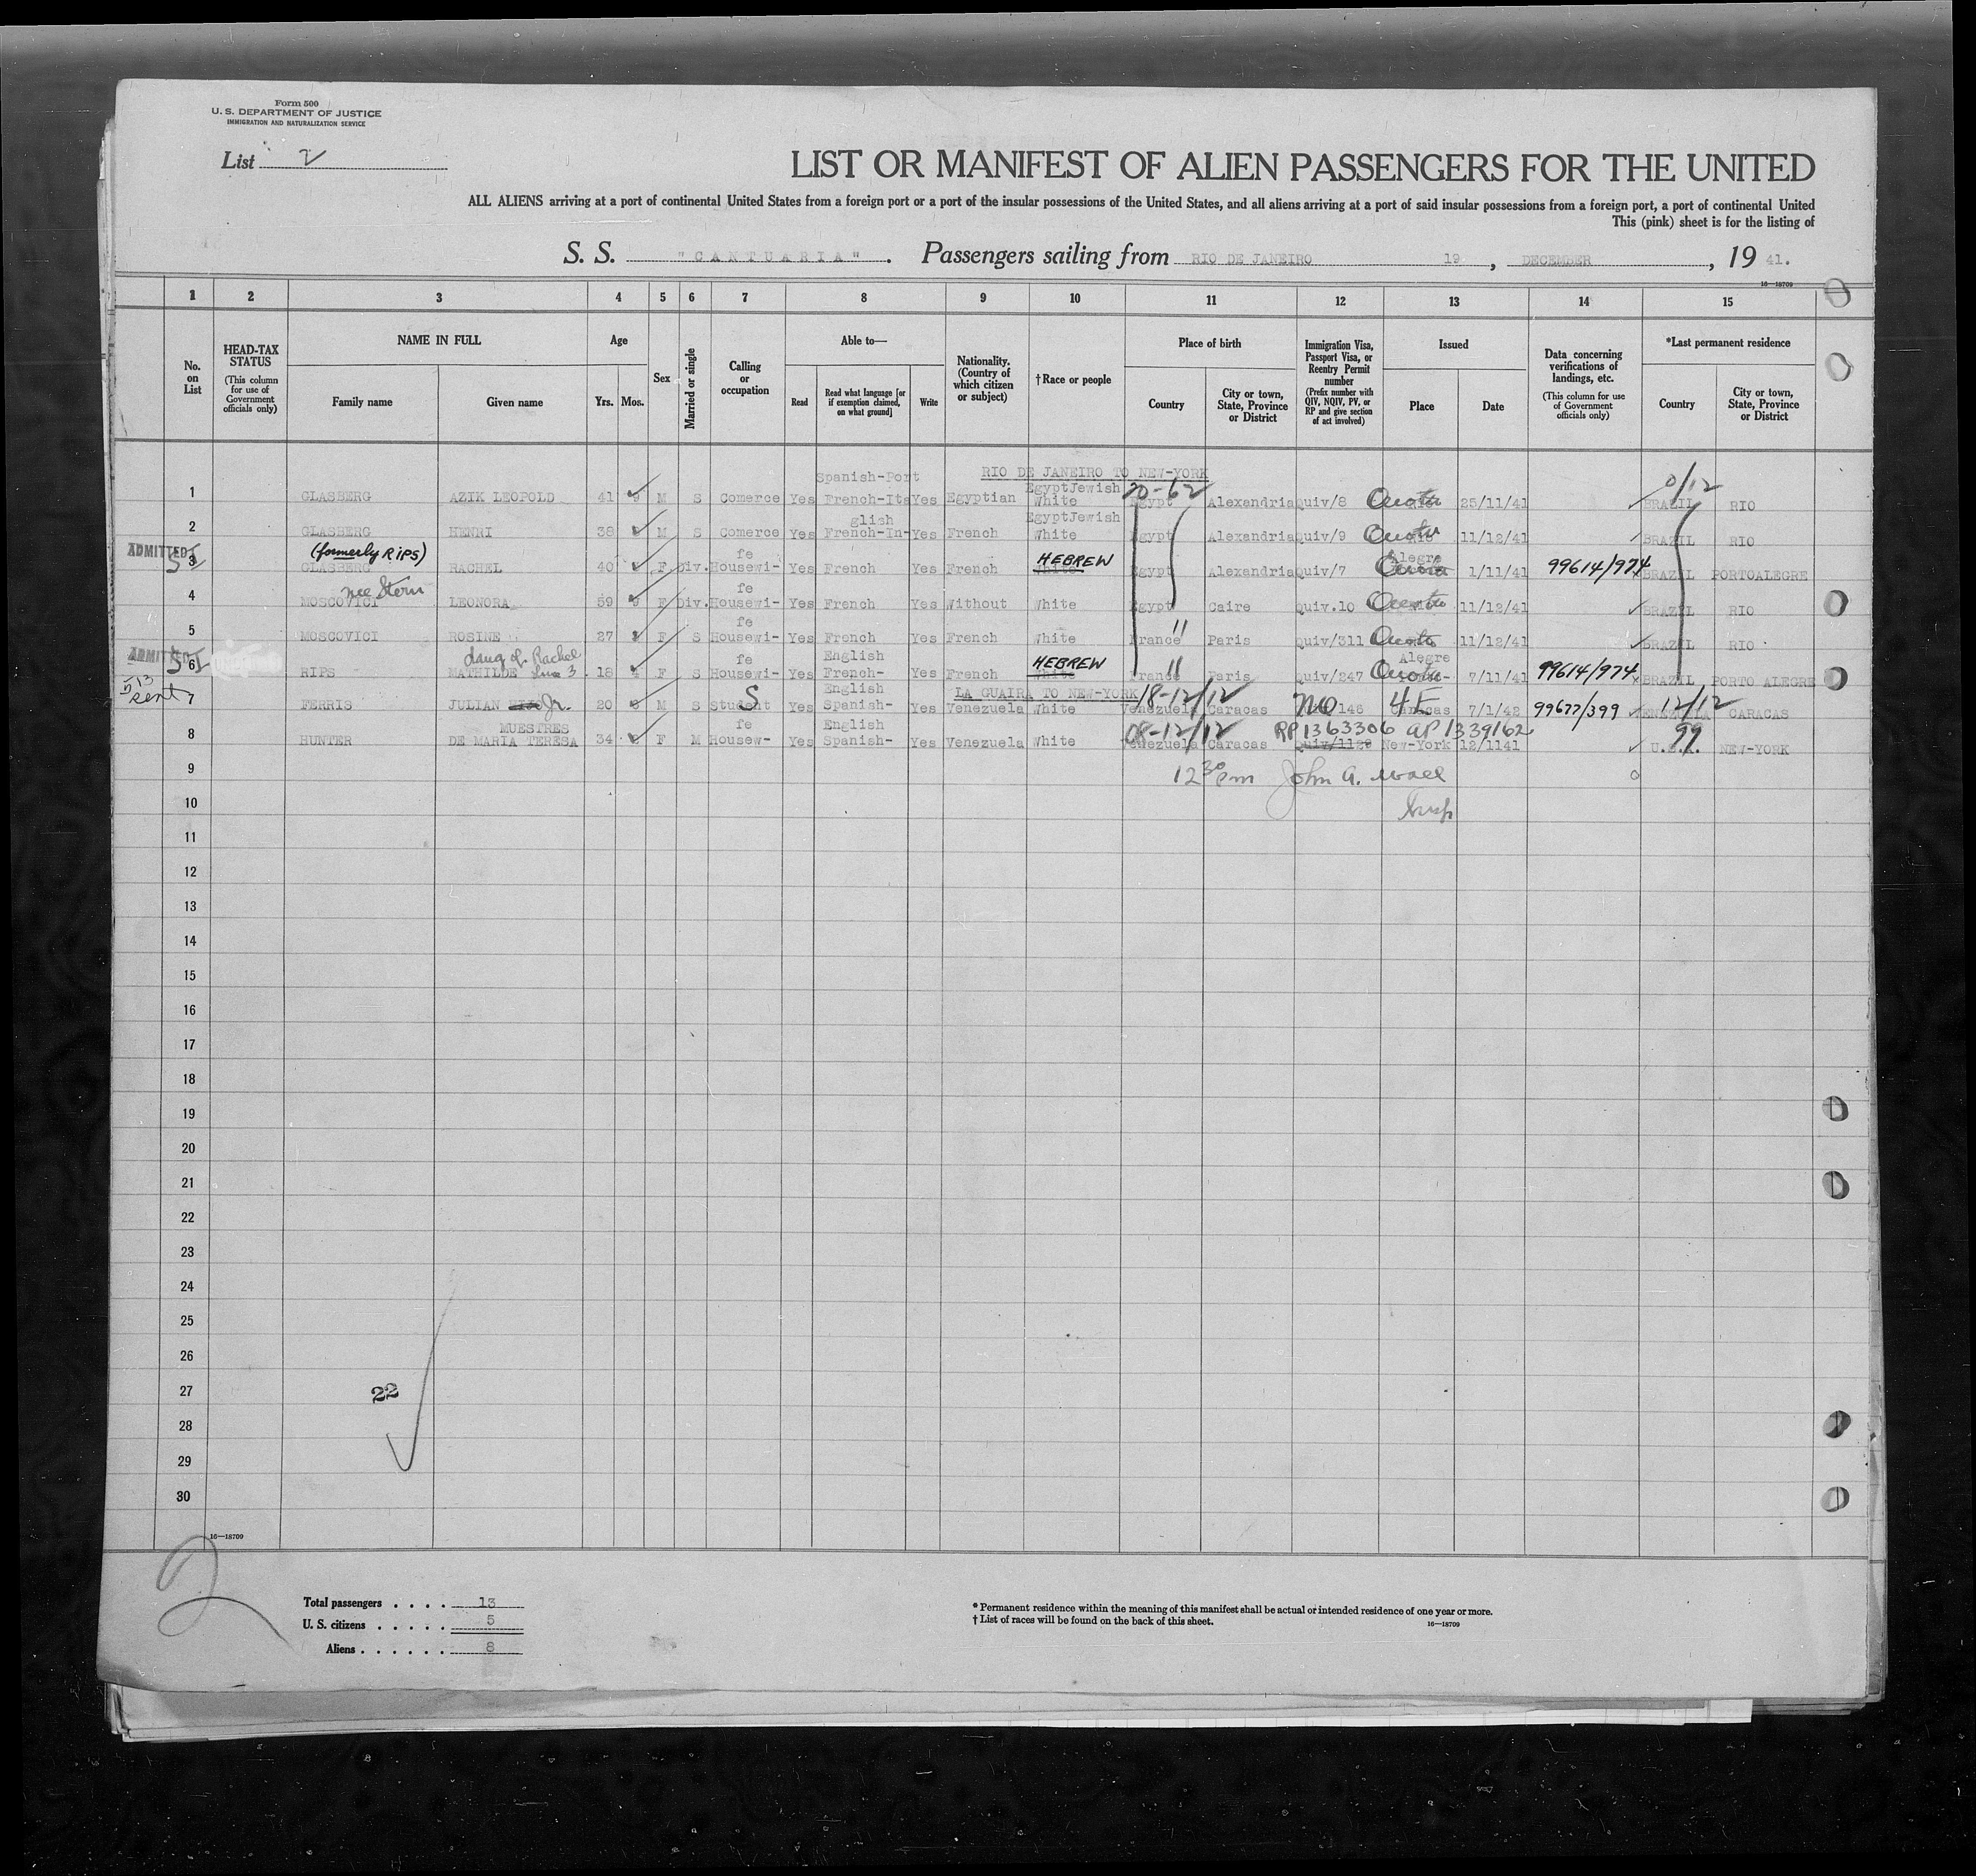 Form 500
U. S. DEPARTMENT OF JUSTICE
IMMIGRATION AND NATURALIZATION SERVICE
List 2
LIST OR MANIFEST OF ALIEN PASSENGERS FOR THE UNITED
ALL ALIENS arriving at a port of continental United States from a foreign port or a port of the insular possessions of the United States, and all aliens arriving at a port of said insular possessions from a foreign port, a port of continental United
This (pink) sheet is for the listing of
S. S. "CANTUARIA". Passengers sailing from RIO DE JANEIRO 19, DECEMBER, 19 41.
16—18709
1 2 3 4 5 6 7 8 9 10 11 12 13 14 15
No. on List
HEAD-TAX STATUS (This column for use of Government officials only)
NAME IN FULL
Family name
Given name
Age
Yrs.
Mos.
Sex
Married or single
Calling or occupation
Able to—
Read
Read what language [or if exemption claimed, on what ground]
Write
Nationality. (Country of which citizen or subject)
†Race or people
Place of birth
Country
City or town, State, Province or District
Immigration Visa, Passport Visa, or Reentry Permit number (Prefix number with QIV, NQIV, PV, or RP and give section of act involved)
Issued
Place
Date
Data concerning verifications of landings, etc. (This column for use of Government officials only)
*Last permanent residence
Country
City or town, State, Province or District
RIO DE JANEIRO TO NEW-YORK
Spanish-Port
EgyptJewish 20-62 0/12
1 GLASBERG AZIK LEOPOLD 41 M S Comerce Yes French-Its Yes Egyptian White Egypt Alexandria Quiv/8 Quota 25/11/41 BRAZIL RIO
glish EgyptJewish
2 GLASBERG HENRI 38 M S Comerce Yes French-In- Yes French White Egypt Alexandria Quiv/9 Quota 11/12/41 BRAZIL RIO
ADMITTED (formerly RIPS) fe HEBREW Alegre
3 GLASBERG RACHEL 40 F Div. Housewi- Yes French Yes French White Egypt Alexandria Quiv/7 Quota 1/11/41 99614/974 BRAZIL PORTOALEGRE
nee Stern fe
4 MOSCOVICI LEONORA 59 F Div. Housewi- Yes French Yes Without White Egypt Caire Quiv.10 Quota 11/12/41 BRAZIL RIO
fe
5 MOSCOVICI ROSINE 27 F S Housewi- Yes French Yes French White France 11 Paris Quiv/311 Quota 11/12/41 BRAZIL RIO
ADMITTED daug of Rachel fe English HEBREW Alegre
6 RIPS MATHILDE line 3 18 F S Housewi- Yes French- Yes French White France 11 Paris Quiv/247 Quota 7/11/41 99614/974 BRAZIL PORTO ALEGRE
English LA GUAIRA TO NEW-YORK 18-12/12
7 FERRIS JULIAN Jr. 20 M S Student S Yes Spanish- Yes Venezuela White Venezuela Caracas 146 4E Caracas 7/1/42 99677/399 VENEZUELA 12/12 CARACAS
MUESTRES fe English 08-12/12 RP1363306 AP1339162 99
8 HUNTER DE MARIA TERESA 34 F M Housew- Yes Spanish- Yes Venezuela White Venezuela Caracas New-York 12/1141 U.S.A. NEW-YORK
9 12 30 pm John A.
10 Insp
11
12
13
14
15
16
17
18
19
20
21
22
23
24
25
26
27 22
28
29
30
16—18709
2
Total passengers . . . . 13
U. S. citizens . . . . . 5
Aliens . . . . . . 8
* Permanent residence within the meaning of this manifest shall be actual or intended residence of one year or more.
† List of races will be found on the back of this sheet.
16—18709